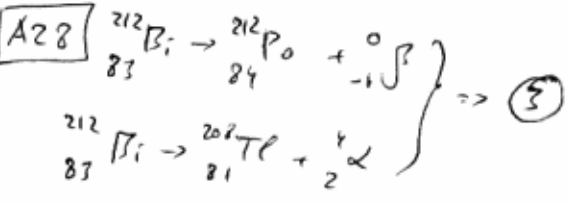 A28 ²¹²₈₃Bi → ²¹²₈₄Po + ⁰₋₁β } => ⑤
²¹²₈₃Bi → ²⁰⁸₈₁Tl + ⁴₂α